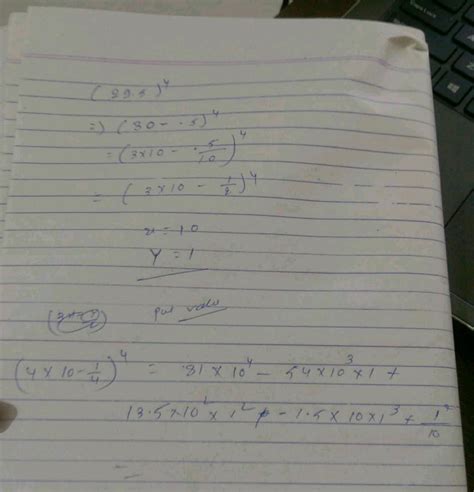 (29.5)⁴
=) (30 - .5)⁴
= (3×10 - .5/10)⁴
= (3×10 - 1/2)⁴
x = 10
Y = 1
put value
(4×10 - 1/4)⁴ = 81×10⁴ - 54×10³×1 +
13.5×10²×1² - 1.5×10×1³ +